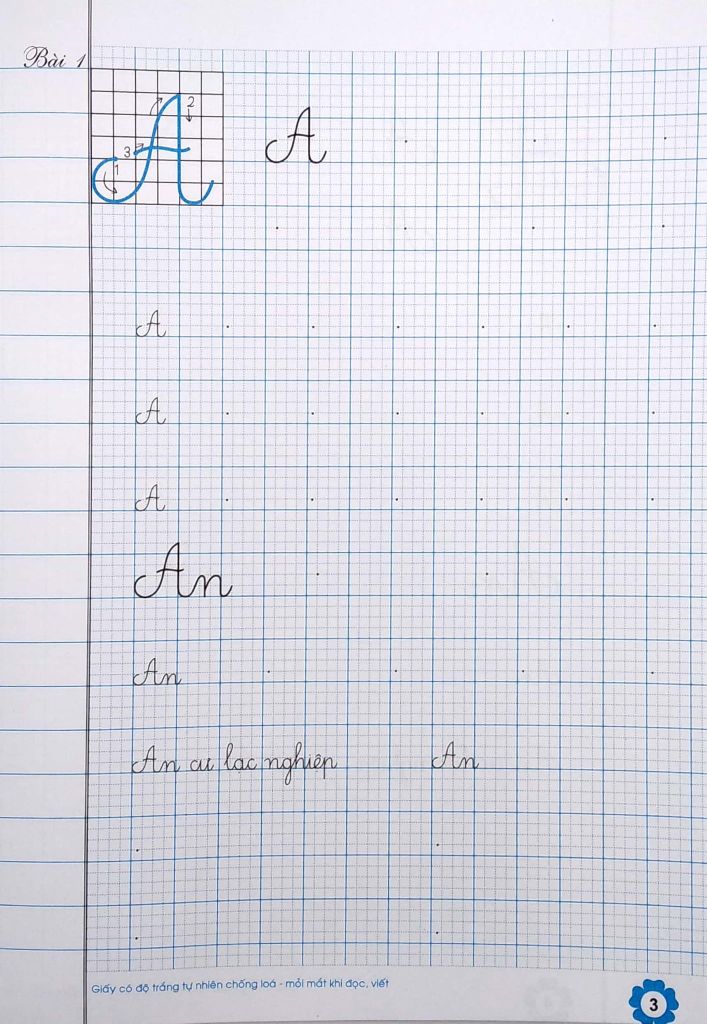 Bài 1
2
3
1
A
A
A
A
An
An
An cư lạc nghiệp An
Giấy có độ trắng tự nhiên chống loá - mỏi mắt khi đọc, viết
3